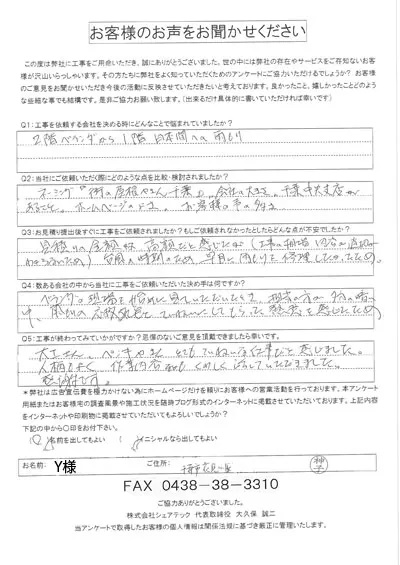 お客様のお声をお聞かせください
この度は弊社に工事をご用命いただき、誠にありがとうございました。世の中には弊社の存在やサービスをご存知ないお客様が沢山いらっしゃいます。その方たちに弊社をよく知っていただくためのアンケートにご協力いただけるでしょうか？お客様のご意見をお聞かせいただき今後の活動に反映させていただきたいと考えております。良かったこと、嬉しかったことどのような些細な事でも結構です。是非ご協力お願い致します。（出来るだけ具体的に書いていただければ幸いです）
Q1:工事を依頼する会社を決める時にどんなことで悩まれていましたか？
2階ベランダから1階日本間への雨もり
Q2:当社にご依頼いただく際にどのような点を比較・検討されましたか？
街の屋根やさん千葉 会社の大きさ、千葉中央支店が
あること、ホームページの お客様の声の多さ
Q3:お見積り提出後すぐに工事をご依頼されましたか？もしご依頼されなかったとしたらどんな点が不安でしたか？
見積りの金額は高額だと感じたが
台風の時期のため、早急に雨もりを修理したかったため。
Q4:数ある会社の中から当社に工事をご依頼いただいた決め手は何ですか？
ベランダの現場を始めに見ていただいたとき、担当の方が
ていねいにしてもらった 感じたため
Q5:工事が終わってみていかがですか？忌憚のないご意見を頂戴できましたら幸いです。
大工さん、ペンキやさん とてもていねいな仕事だと感じました。
人柄もよく、作業内容も くわしく していただきました。
＊弊社は広告宣伝費を極力かけない為にホームページだけを頼りにお客様への営業活動を行っております。本アンケート用紙またはお客様宅の調査風景や施工状況を随時ブログ形式でのインターネットに掲載させていただいております。上記内容をインターネットや印刷物に掲載させていただいてもよろしいでしょうか？
下記の中から〇印をお付下さい。
( )名前を出してもよい (〇)イニシャルなら出してもよい
お名前: Y様 ご住所: 千葉市花見川区
FAX 0438-38-3310
ご協力ありがとうございました。
株式会社シェアテック 代表取締役 大久保 誠二
当アンケートで取得したお客様の個人情報は関係法規に基づき厳正に管理いたします。